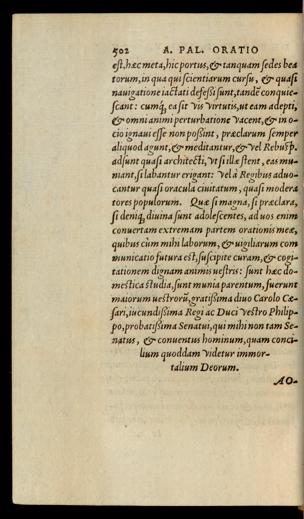 502 A. PAL. ORATIO
est, hæc meta, hic portus, & tanquam sedes bea
torum, in qua qui scientiarum cursu, & quasi
nauigatione iactati defessi sunt, tandē conquie-
scant: cumq́; ea sit vis virtutis, ut eam adepti,
& omni animi perturbatione vacent, & in o-
cio ignaui esse non possint, præclarum semper
aliquod agunt, & meditantur, & vel Rebusp.
adsunt quasi architecti, vt si illæ stent, eas mu-
niant, si labantur erigant: vel à Regibus aduo-
cantur quasi oracula ciuitatum, quasi modera
tores populorum. Quæ si magna, si præclara,
si deniq; diuina sunt adolescentes, ad uos enim
conuertam extremam partem orationis meæ,
quibus cùm mihi laborum, & uigiliarum com
municatio futura est, suscipite curam, & cogi-
tationem dignam animis uestris: sunt hæc do-
mestica studia, sunt munia parentum, fuerunt
maiorum uestrorū, gratissima diuo Carolo Cæ-
sari, iucundissima Regi ac Duci Vestro Philip-
po, probatissima Senatui, qui mihi non tam Se-
natus, & conuentus hominum, quam conci-
lium quoddam videtur immor-
talium Deorum.
AO-